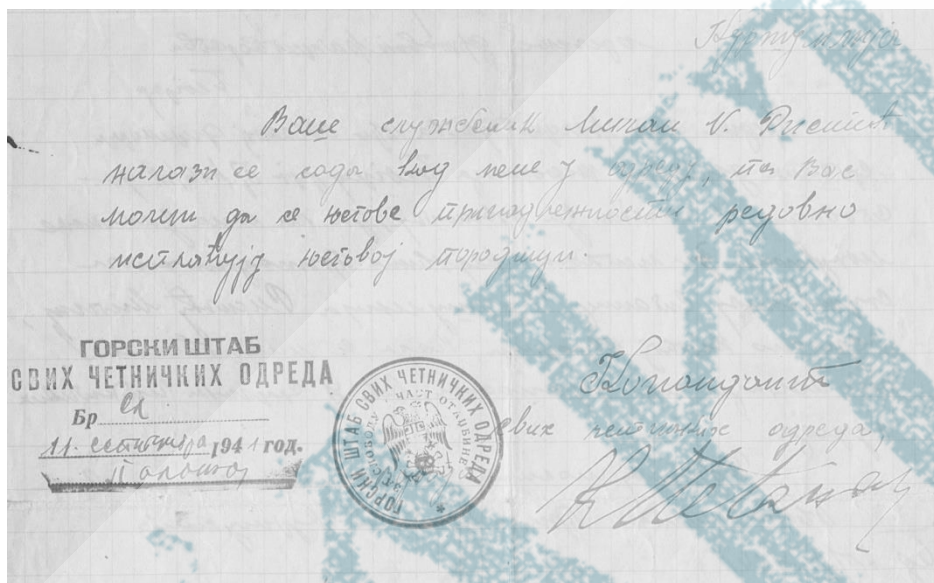 Куршумлија
Ваш службеник Милан V. Ристић
налази се сада код мене у одреду, па Вас
молим да се његове принадлежности редовно
исплаћују његовој породици.
ГОРСКИ ШТАБ
СВИХ ЧЕТНИЧКИХ ОДРЕДА
Бр Сл.
11. септембра 1941 год.
Положај
ГОРСКИ ШТАБ СВИХ ЧЕТНИЧКИХ ОДРЕДА
ЗА СЛОБОДУ И ЧАСТ ОТАЏБИНЕ
Командант
свих четничких одреда,